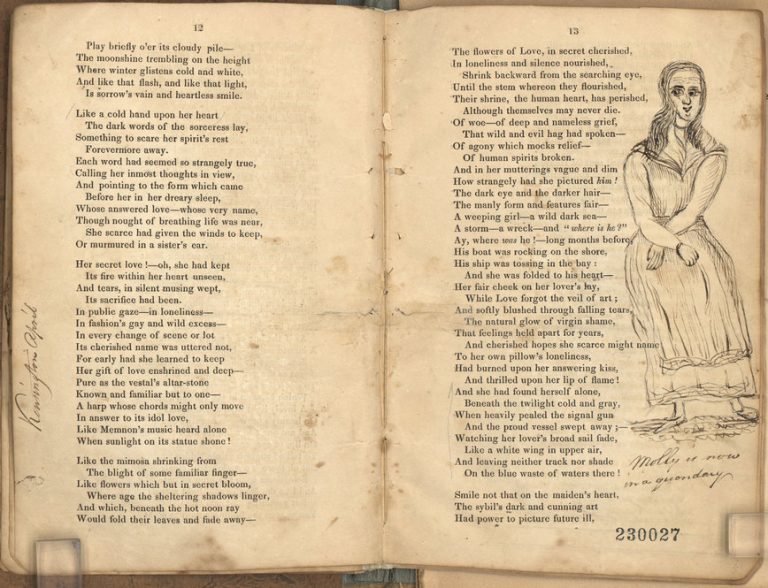 12
Play briefly o'er its cloudy pile—
The moonshine trembling on the height
Where winter glistens cold and white,
And like that flash, and like that light,
Is sorrow's vain and heartless smile.
Like a cold hand upon her heart
The dark words of the sorceress lay,
Something to scare her spirit's rest
Forevermore away.
Each word had seemed so strangely true,
Calling her inmost thoughts in view,
And pointing to the form which came
Before her in her dreary sleep,
Whose answered love—whose very name,
Though nought of breathing life was near,
She scarce had given the winds to keep,
Or murmured in a sister's ear.
Her secret love!—oh, she had kept
Its fire within her heart unseen,
And tears, in silent musing wept,
Its sacrifice had been.
In public gaze—in loneliness—
In fashion's gay and wild excess—
In every change of scene or lot
Its cherished name was uttered not,
For early had she learned to keep
Her gift of love enshrined and deep—
Pure as the vestal's altar-stone
Known and familiar but to one—
A harp whose chords might only move
In answer to its idol love,
Like Memnon's music heard alone
When sunlight on its statue shone!
Like the mimosa shrinking from
The blight of some familiar finger—
Like flowers which but in secret bloom,
Where age the sheltering shadows linger,
And which, beneath the hot noon ray
Would fold their leaves and fade away—
April
13
The flowers of Love, in secret cherished,
In loneliness and silence nourished,
Shrink backward from the searching eye,
Until the stem whereon they flourished,
Their shrine, the human heart, has perished,
Although themselves may never die.
Of woe—of deep and nameless grief,
That wild and evil hag had spoken—
Of agony which mocks relief—
Of human spirits broken.
And in her mutterings vague and dim
How strangely had she pictured him!
The dark eye and the darker hair—
The manly form and features fair—
A weeping girl—a wild dark sea—
A storm—a wreck—and "where is he?"
Ay, where was he!—long months before,
His boat was rocking on the shore,
His ship was tossing in the bay:
And she was folded to his heart—
Her fair cheek on her lover's lay,
While Love forgot the veil of art;
And softly blushed through falling tears,
The natural glow of virgin shame,
That feelings held apart for years,
And cherished hopes she scarce might name
To her own pillow's loneliness,
Had burned upon her answering kiss,
And thrilled upon her lip of flame!
And she had found herself alone,
Beneath the twilight cold and gray,
When heavily pealed the signal gun
And the proud vessel swept away;—
Watching her lover's broad sail fade,
Like a white wing in upper air,
And leaving neither track nor shade
On the blue waste of waters there!
Smile not that on the maiden's heart,
The sybil's dark and cunning art
Had power to picture future ill,
Molly is now
in a quandary
230027